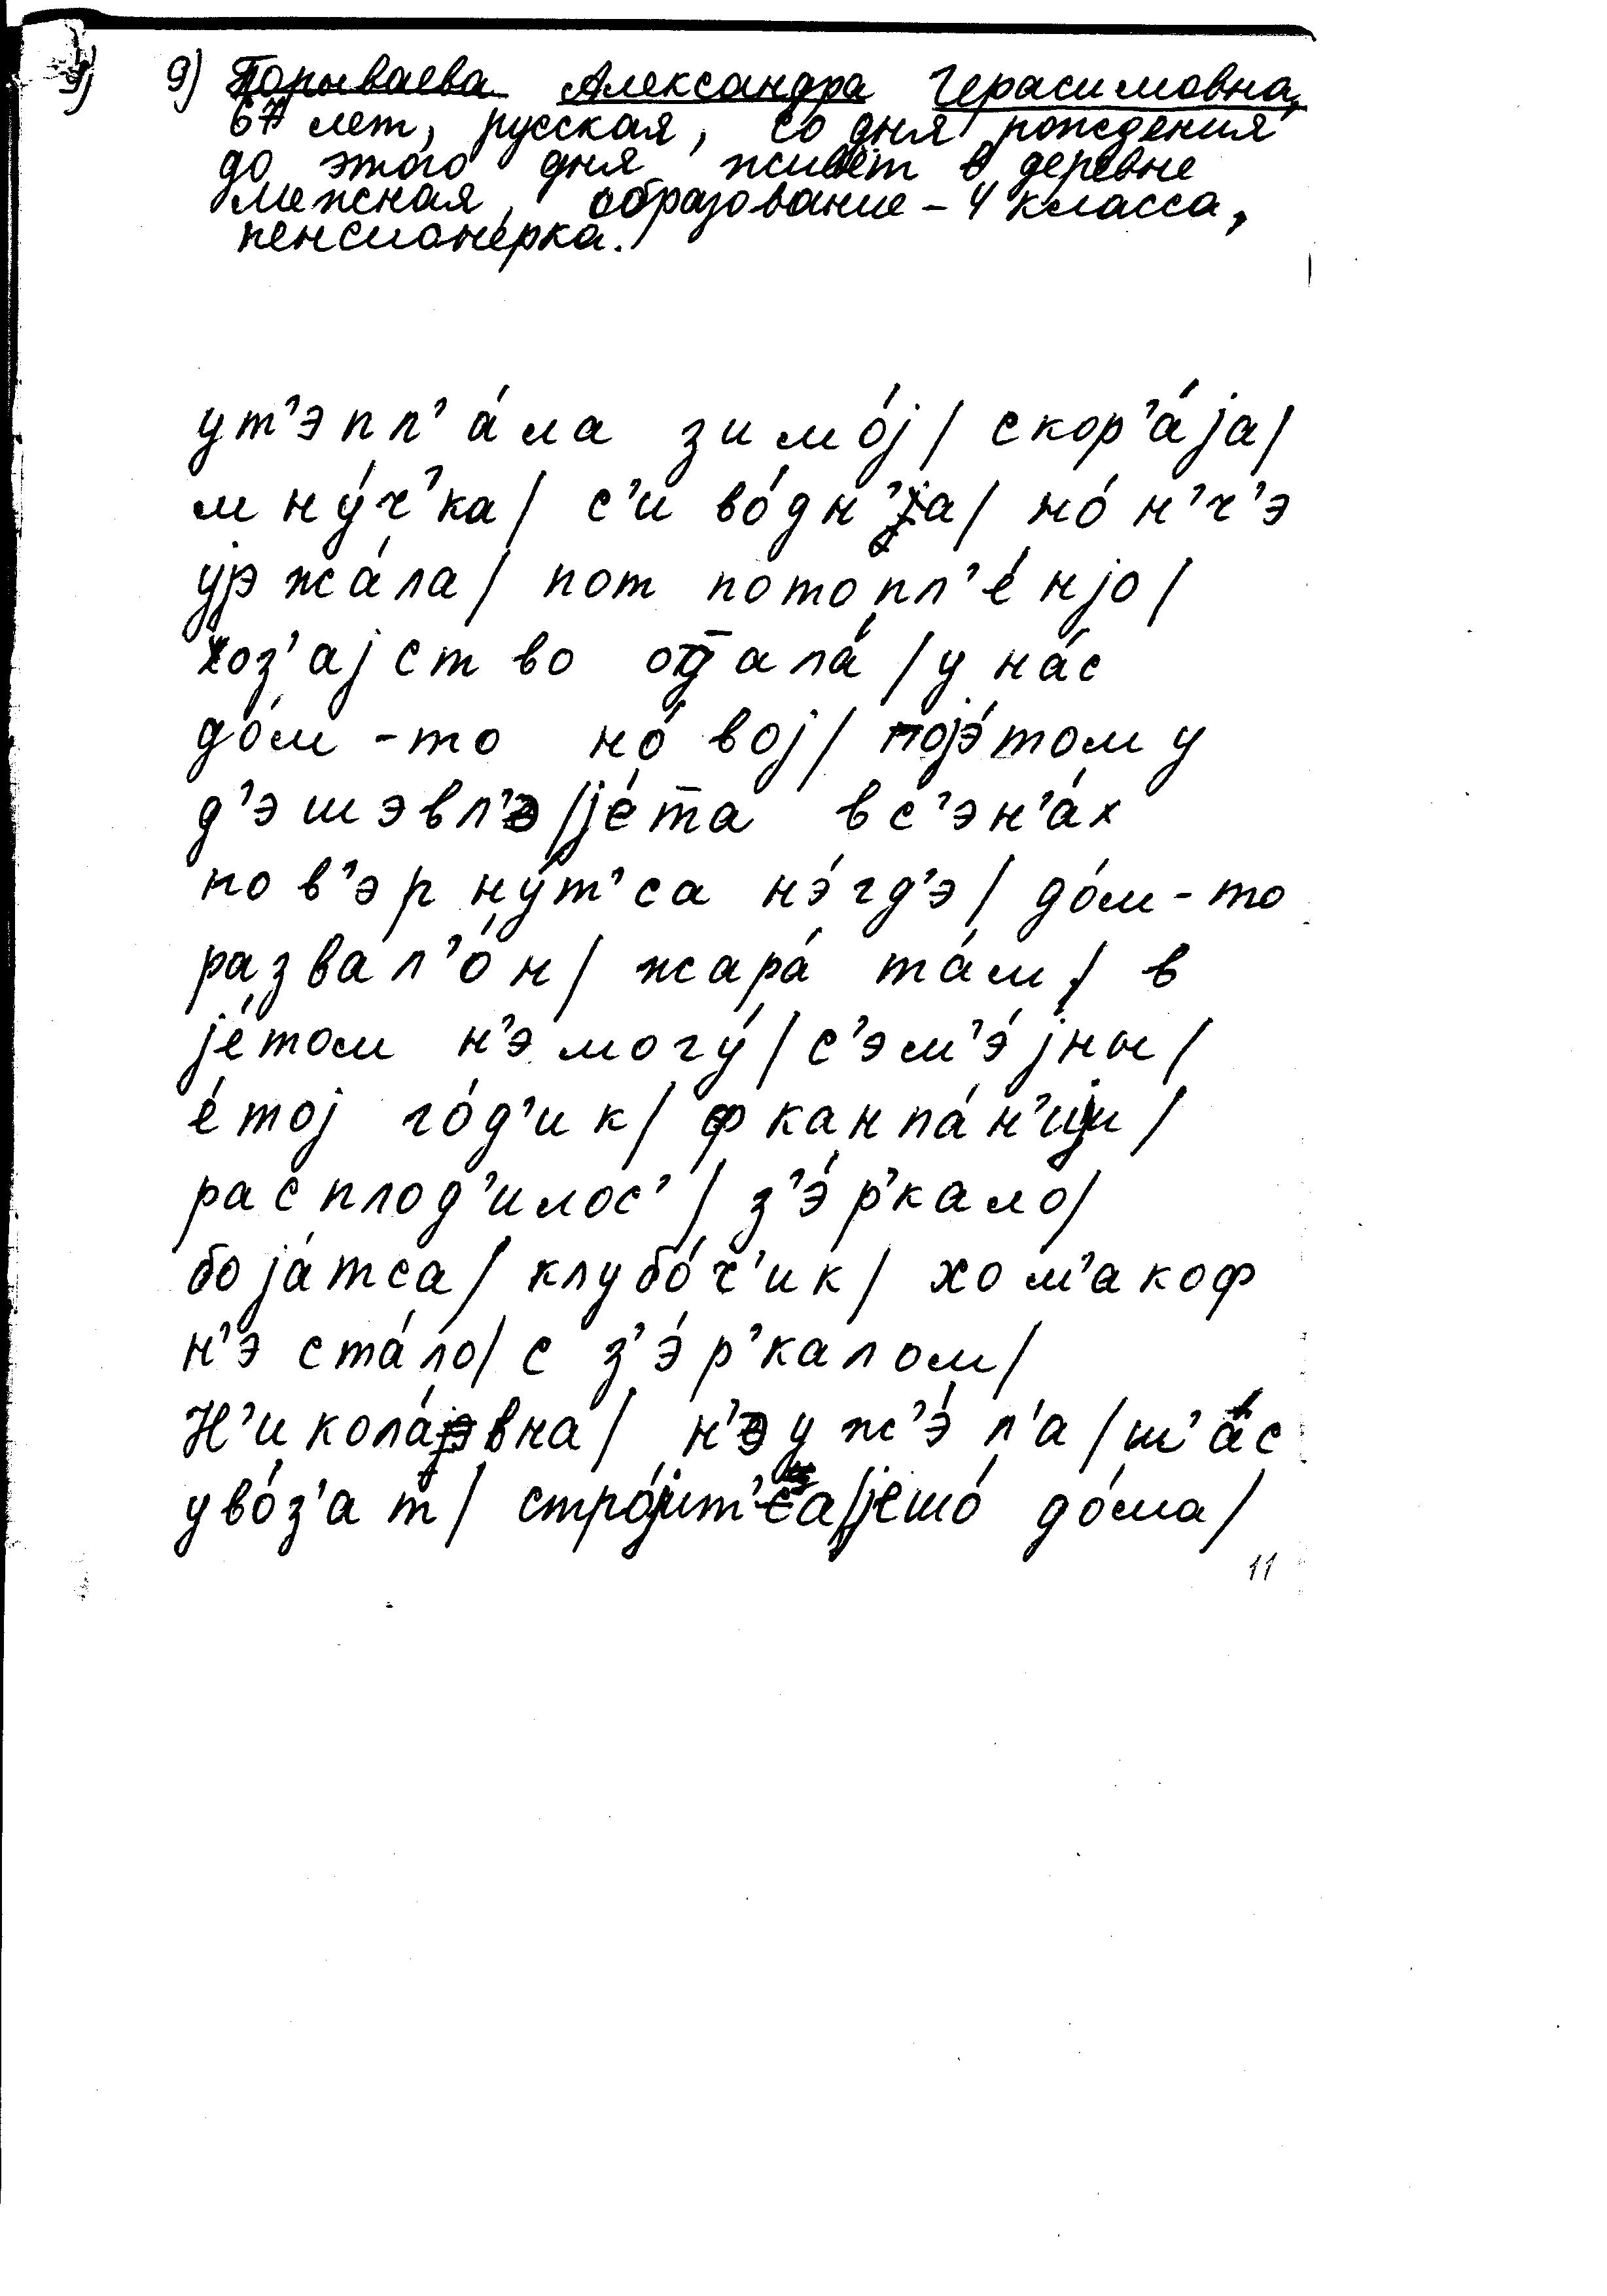 9) Порываева Александра Герасимовна,
67 лет, русская, со дня рождения
до этого дня живёт в деревне
Межная, образование – 4 класса,
пенсионерка.
ут’эпл’а́ла зимо́j/ скор’а́jа/
мну́ч’ка/ с’и во́дн’jа/ но́н’ч’э
уржа́ла/ пот потопл’е́нjо/
хоз’аjство отдала́/ у на́с
до́м-то но́воj/ поjэ́тому
д’эшэвл’э/jе́та в с’эн’а́х
пов’эрну́т’са нэ́гд’э/ до́м-то
развал’о́н/ жара́ та́м/ в
jе́том н’э могу́/ с’эм’э́jны/
е́тоj го́д’ик/ ф канпа́н’иjи/
расплод’илос’/ з’э́р’кало/
боjа́тса/ клубо́ч’ик/ хом’акоф
н’э ста́ло/ с з’э́р’калом/
Н’икола́jэвна/ н’эуж’э́л’а/ ш’а́с
уво́з’ат/ стро́jит’са/jешо́ до́ма/
11